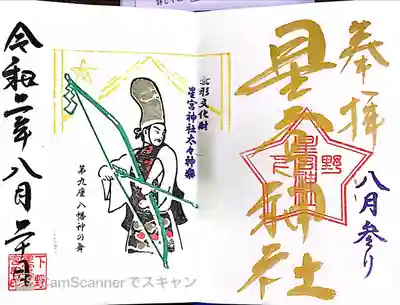 奉拝
八月参り
星宮神社
星宮神社
無形文化財
星宮神社太々神楽
第九座 八幡神の舞
令和二年八月二十
下野
CamScannerでスキャン